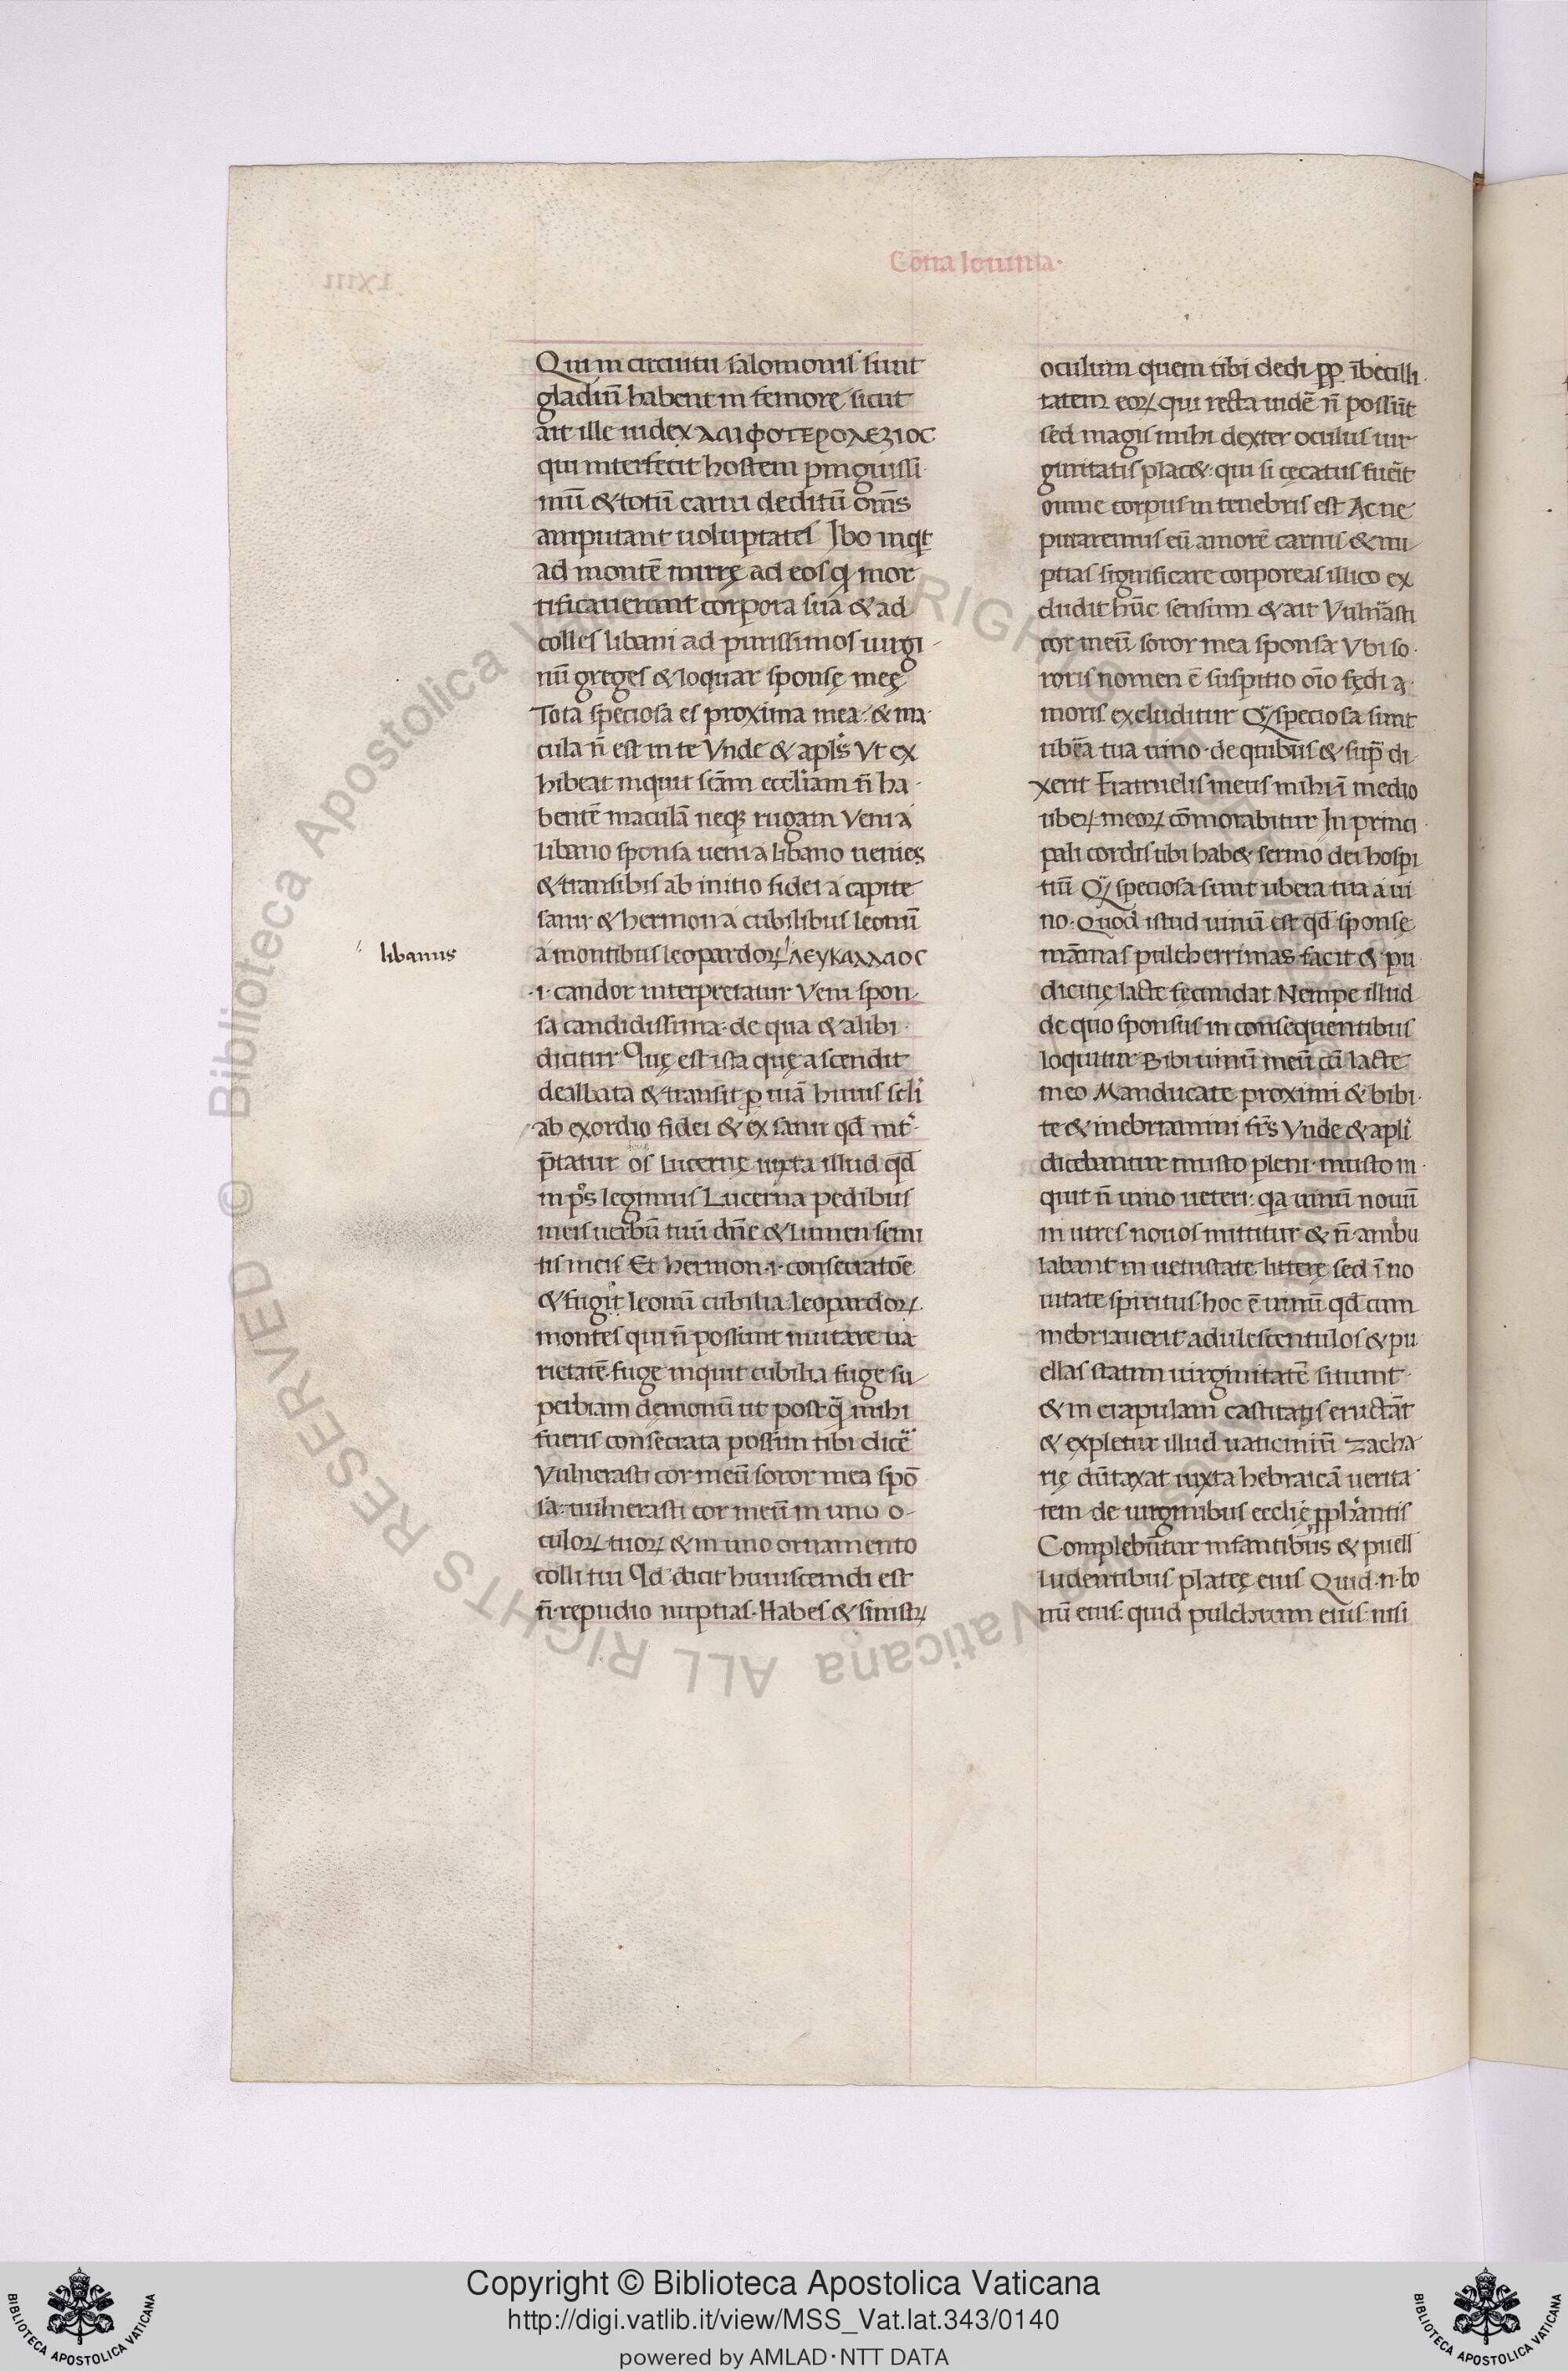 Cōtra Iouinia·
Qui in circuitu salomonis sunt
gladiū habent in femorę sicut
ait ille iudex ΛΜΙΦΟΤΕΡΟΛΕΞΙΟC
qui interfecit hostem pinguissi
mū & totū carni deditū om̄s
amputant uoluptates Ibo inqt
ad montē mirrę ad eos q mor
tificauerunt corpora sua & ad
colles libani ad purissimos uirgi
nū greges & loquar sponsę meę
Tota speciosa es proxima mea· & ma
cula n̄ est in te Vnde & apls Vt ex
hibeat inquit scām eccliam n̄ ha
bentē maculā neq; rugam Veni a
libano sponsa ueni a libano uenies
& transibis ab initio fidei a capite
sanir & hermon a cubilibus leonū
libanus
a montibus leopardoꝝ ΛΕΥΚΑΛΛΙΟC
·i· candor interpretatur Veni spon
sa candidissima· de qua & alibi
dicitur Quę est ista quę ascendit
dealbata & transit p uiā huius scli
ab exordio fidei & ex sanir qd int
p̄tatur os lucernę iuxta illud qd
in ps legimus Lucerna pedibus
meis uerbū tuū dn̄e & lumen semi
tis meis Et hermon ·i· consecratoē
& fugit leonū cubilia leopardoꝝ
montes qui n̄ possunt mutare ua
rietatē· fuge inquit cubilia fuge su
perbiam dęmonū ut postq̄ mihi
fueris consecrata possim tibi dicē
Vulnerasti cor meū soror mea spō
sa· uulnerasti cor meū in uno o
culoꝝ tuoꝝ & in uno ornamento
colli tui Qd dicit huiuscemdi est
n̄ repudio nuptias· Habes & sinistꝝ
oculum quem tibi dedi pp ībecilli
tatem eoꝝ qui recta uidē n̄ possūt
sed magis mihi dexter oculus uir
ginitatis plac&· qui si cęcatus fuēit
omne corpus in tenebris est Ac ne
putaremus eū amorē carnis & nu
ptias significare corporeas illico ex
cludit hūc sensum & ait Vulnāsti
cor meū soror mea sponsa Vbi so
roris nomen ē suspitio oīo fędi a
moris excluditur Q speciosa sunt
ubēa tua uino· de quibus & sup̄ di
xerit Fratruelis meus mihi ī medio
uberꝝ meoꝝ cōmorabitur In princi
pali cordis ubi hab& sermo dei hospi
tiū Q speciosa sunt ubera tua a ui
no· Quod istud uinū est qd sponsę
māmas pulcherrimas facit & pu
dicitię lacte fęcundat Nempe illud
de quo sponsus in consequentibus
loquitur Bibi uinū meū cū lacte
meo Manducate proximi & bibi
te & inebriamini frs Vnde & apli
dicebantur musto pleni· musto in
quit n̄ uino ueteri· qa uinū nouū
in utres nouos mittitur & n̄ ambu
labant in uetustate litterę sed ī no
uitate spiritus· hoc ē uinū qd cum
inebriauerit adulescentulos & pu
ellas statim uirginitatē sitiunt
& in crapulam castitatis eructāt
& expletur illud uaticiniū zacha
rię dūtaxat iuxta hebraicā uerita
tem de uirginibus ecclię pphantis
Complebūtur infantibus & puell
ludentibus platęę eius Quid·n·bo
nū eius· quid pulchrum eius· nisi
Copyright © Biblioteca Apostolica Vaticana
http://digi.vatlib.it/view/MSS_Vat.lat.343/0140
powered by AMLAD·NTT DATA